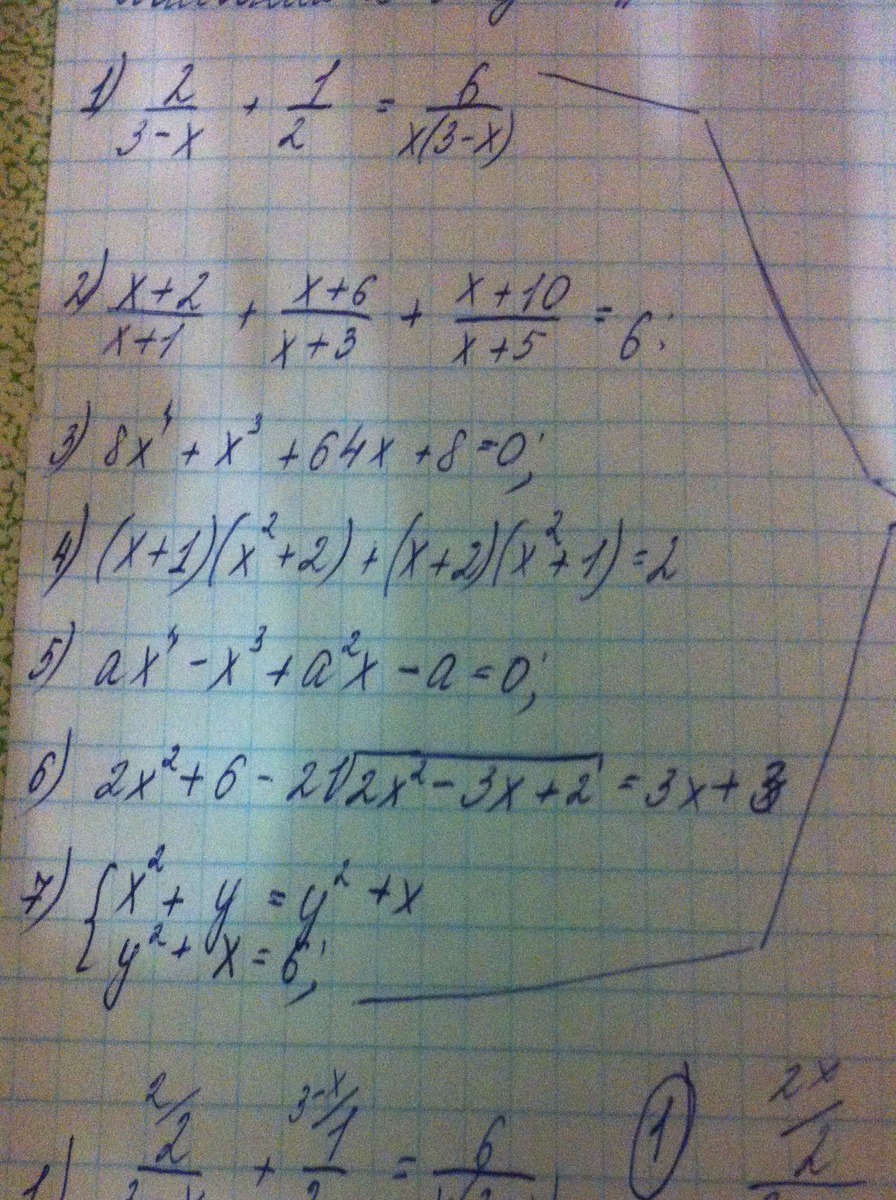 1) 2/(3-x) + 1/2 = 6/(x(3-x))
2) (x+2)/(x+1) + (x+6)/(x+3) + (x+10)/(x+5) = 6;
3) 8x⁴ + x³ + 64x + 8 = 0;
4) (x+1)(x²+2) + (x+2)(x²+1) = 2
5) ax⁴ - x³ + a²x - a = 0;
6) 2x² + 6 - 2√(2x² - 3x + 2) = 3x + 3
7) { x² + y = y² + x
y² + x = 6;
2/ 3-x/ 2x/
1) 2 + 1 = 6 1 2